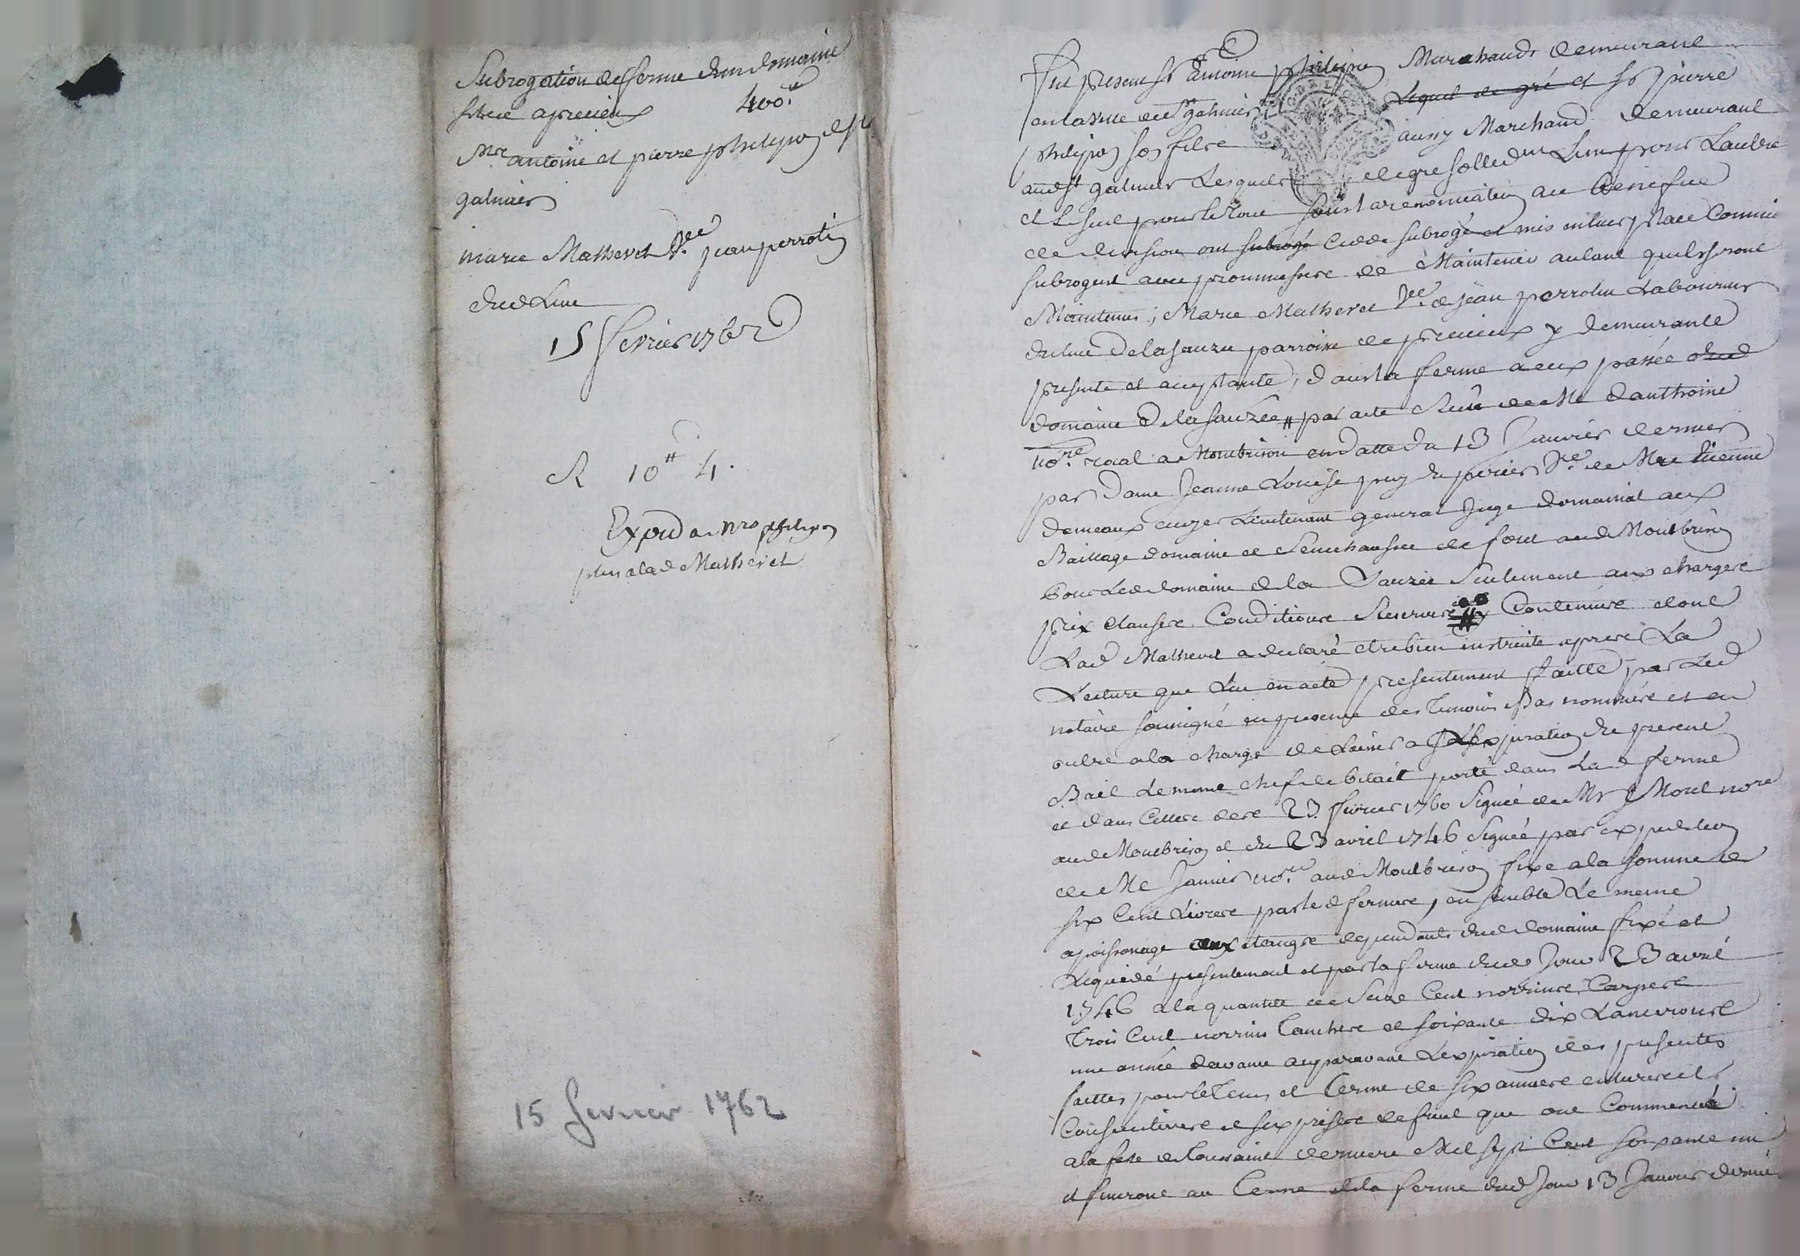 Subrogation de ferme d'un domaine
situé a precieux 400 ll
Mrs antoine et pierre philipon de St
galmier
marie Mathevet Vve jean perrotin
dud Lieu
15 fevrier 1762
R 10 ll 4.
Expéd a Mrs philipon
plus a lad Mathevet
15 fevrier 1762
Fut present sr antoine philipon Marchand demeurant
en la ville de St galmier Lequel de gré et sr pierre
philipon son fils aussy Marchand demeurant
aud St galmier Lesquels de gré sollidt L'un pour L'autre
et L seul pour le tout sous la renonciation au benefice
de division ont subrogé Cedé subrogé et mis en leur place Comme
subrogent avec promesse de Maintenir autant qu'ils seront
Maintenus, Marie Mathevet Vve de jean perrotin Laboureur
du lieu de la sauzée parroisse de precieux y demeurante
presente et acceptante, dans la ferme a eux passée dud
domaine de la sauzée par acte Recu de Me dauthoine
nore roial a Montbrison en datte du 13 Janvier dernier
par dame Jeanne Louise puy du perier Ve de Mre Etienne
demeaux Lieutenant general Juge domanial aux
Bailliage domaine et Senechaussée de forest aud Montbrison
pour Led domaine de la Sauzée Seulement aux charges
prix clauses Conditions Reserves y Contenues dont
Lad Mathevet a declaré etre bien instruite apres La
Lecture que Lui en a eté presentement faitte par Led
notaire soussigné en presence des temoins Bas nommés et en
outre a la charge de Laisser a L'expiration du present
Bail Le meme chef de betail porté dans Lad ferme
et dans Celles des 23 fevrier 1760 Signée de Me Morel nore
aud Montbrison et du 23 avril 1746 Signée par expedition
de Me Janier nore aud Montbrison fixé a la somme de
six Cent Livres par led fermes, ensemble Le meme
apoissonage aux etangs dependants dud domaine fixé et
Liquidé presentement et par la ferme dud Jour 23 avril
1746 a la quantité de Seize Cent norrins Carpes
Trois Cent norrins Tanches et soixante dix
une année davance auparavant L'expiration des presentes
faittes pour le tems et terme de six années entieres et
Consecutives et six prises de fruit qui ont Commencé
a la fete de toussaint derniere Mil sept Cent soixante un
et finiront au terme de la ferme dud Jour 13 Janvier dernier